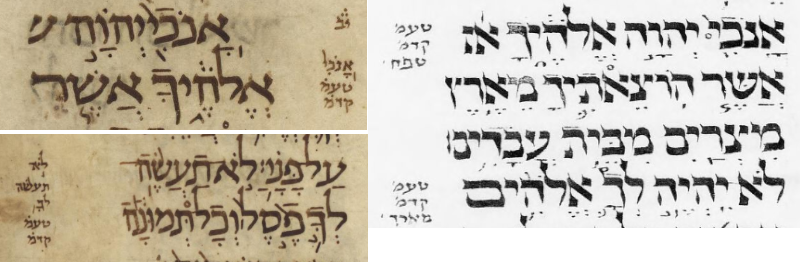 אָנֹכִי יְהוָה
אֱלֹהֶיךָ אֲשֶׁר
אנכי
טעמ׳
קדמ׳
עַל פָּנָי לֹא תַעֲשֶׂה
לְךָ פֶסֶל וְכָל תְּמוּנָה
לא
תעשה
לך
טעמ׳
קדמ׳
אנכי יהוה אלהיך
אשר הוצאתיך מארץ
מצרים מבית עבדים
לא יהיה לך אלהים
טעמ׳
קדמ׳
טפח׳
טעמ׳
קדמ׳
מארך׳